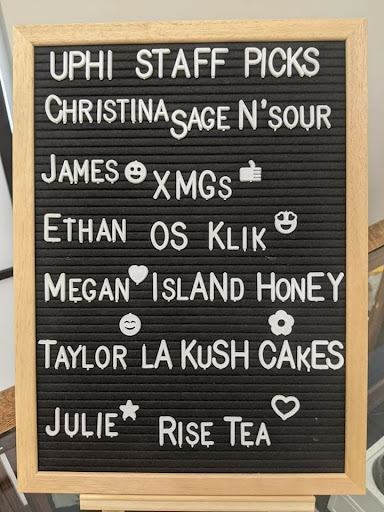 UPHI STAFF PICKS
CHRISTINA SAGE N'SOUR
JAMES XMGS
ETHAN OS KLIK
MEGAN ISLAND HONEY
TAYLOR LA KUSH CAKES
JULIE RISE TEA